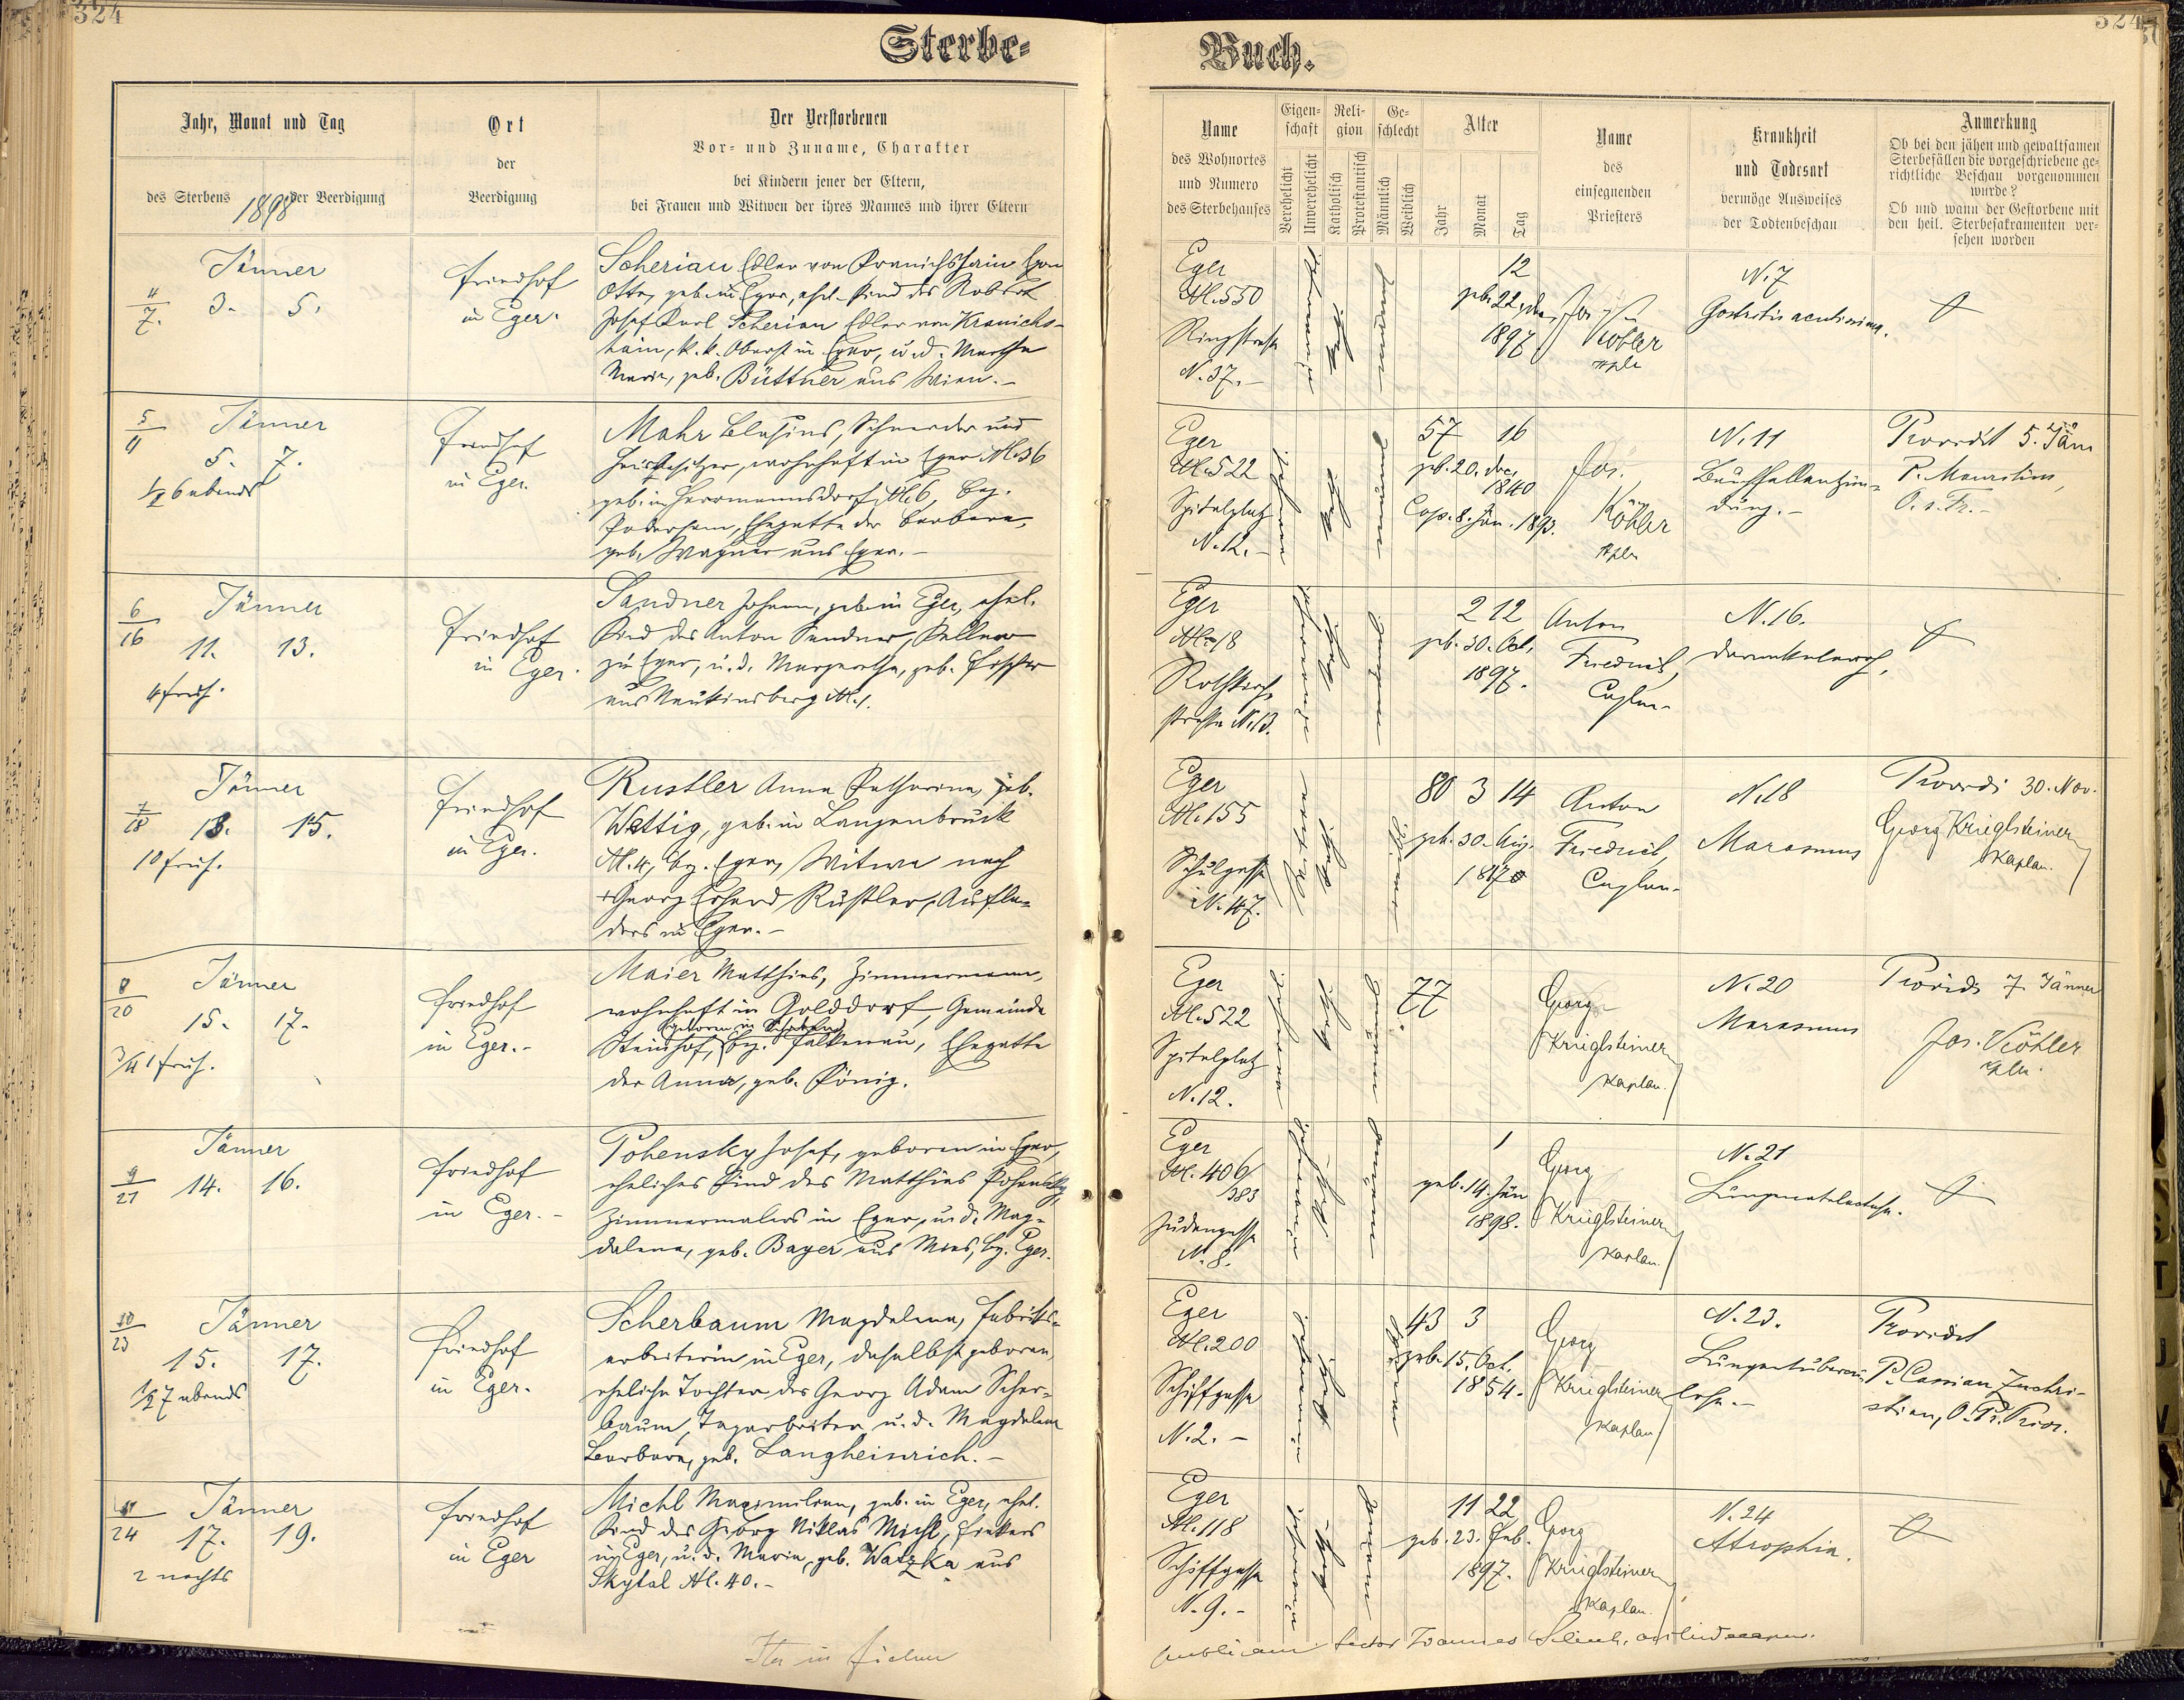 324
Sterbe-
Jahr, Monat und Tag
des Sterbens
der Beerdigung
1898
Ort
der
Beerdigung
Der Verstorbenen
Vor- und Zuname, Charakter
bei Kindern jener der Eltern,
bei Frauen und Witwen der ihres Mannes und ihrer Eltern
4/7. Jänner
3. 5.
Friedhof
in Eger.
Scherian Edler von Kranichshain Egon
Otto, geb. in Eger, ehel. Kind des Robert
Josef Karl Scherian Edler von Kranichs-
hain, k. k. Oberst in Eger, u. d. Martha
Maria, geb. Büttner aus Wien.-
5/11 Jänner
5. 7.
1/2 6 abends
Friedhof
in Eger.
Mahr Blasius, Schneider und
Hausbesitzer, wohnhaft in Eger Nr. 36
geb. in Herrmannsdorf Nr. 6, Bez.
Podersam, Ehegatte der Barbara,
geb. Wagner aus Eger.-
6/16 Jänner
11. 13.
4 früh.
Friedhof
in Eger.
Sandner Johann, geb. in Eger, ehel.
Kind des Anton Sandner, Kellner
zu Eger, u. d. Margaretha, geb. Fischer
aus Neukinsberg Nr. 1.
7/18 Jänner
13. 15.
10 früh.
Friedhof
in Eger.
Rustler Anna Katharina, geb.
Wettig, geb. in Langenbruck
Nr. 4, Bz. Eger, Witwe nach
+ Georg Erhard Rustler, Aufla-
ders in Eger.-
8/20 Jänner
15. 17.
3/4 1 früh.
Friedhof
in Eger.-
Maier Matthias, Zimmermann,
wohnhaft in Golddorf, Gemeinde
geboren in
Steinhof, Bz. Falkenau, Ehegatte
der Anna, geb. König.
9/21 Jänner
14. 16.
Friedhof
in Eger.-
Pohensky Josef, geboren in Eger,
eheliches Kind des Matthias Pohensky
Zimmermalers in Eger, u. d. Mag-
dalena, geb. Bayer aus Mies, Bz. Eger.
10/23 Jänner
15. 17.
1/2 7 abends
Friedhof
in Eger.
Scherbaum Magdalena, Fabriks-
arbeiterin in Eger, daselbst geboren,
eheliche Tochter des Georg Adam Scher-
baum, Tagarbeiter, u. d. Magdalena
Barbara, geb. Langheinrich.-
11/24 Jänner
17. 19.
2 nachts
Friedhof
in Eger
Michl Maximilian, geb. in Eger, ehel.
Kind des Georg Niklas Michl, Fiakers
in Eger, u. d. Maria, geb. Watzka aus
Skytal Nr. 40.-
324
Buch.
Name
des Wohnortes
und Numero
des Sterbehauses
Eigen-
schaft
Verehelicht
Unverehelicht
Reli-
gion
Katholisch
Protestantisch
Ge-
schlecht
Männlich
Weiblich
Alter
Jahr
Monat
Tag
Name
des
einsegnenden
Priesters
Krankheit
und Todesart
vermöge Ausweises
der Todtenbeschau
Anmerkung
Ob bei den jähen und gewaltsamen
Sterbefällen die vorgeschriebene ge-
richtliche Beschau vorgenommen
wurde?
Ob und wann der Gestorbene mit
den heil. Sterbesakramenten ver-
sehen worden
Eger
Nr. 550
Ringstrasse
N. 37.-
12
geb. 22. Dez.
1897
Köhler
N. 7
Gastritis acutissima.
Eger
Nr. 522
Spitalplatz
N. 12.-
57 16
geb. 20. Dec.
1840
Cop. 8. Jän. 1893.
Jos.
Köhler
N. 11
Bauchfellentzün-
dung.-
Providit 5. Jän
P. Mauritius,
O. s. Fr.-
Eger
Nr. 18
Rothkirch-
strasse N. 13.
2 12
geb. 30. Oct.
1897.
Anton
Friedrich,
Caplan.
N. 16.
Darmkatarrh.
Eger
Nr. 155
Schulgasse
N. 17.
80 3 14
geb. 30. Aug.
Anton
Friedrich,
Caplan.
N. 18
Marasmus
Providi 30. Nov.
Georg Krieglsteiner
Kaplan.
Eger
Nr. 522
Spitalplatz
N. 12.
77
Georg
Krieglsteiner
Kaplan.
N. 20
Marasmus
Providi 7. Jänner
Jos. Köhler
Eger
Nr. 406/383
Judengasse
N. 8.
1
geb. 14. Jän
1898.
Georg
Krieglsteiner
Kaplan.
N. 21
Lungenatelectase.
Eger
Nr. 200
Schiffgasse
N. 2.-
43 3
geb. 15. Oct.
1854.
Georg
Krieglsteiner
Kaplan
N. 23.
Lungentuberku-
lose.-
Providit
P. Cassian Zuchri-
stian, O. Pr. Prior.
Eger
Nr. 118
Schiffgasse
N. 9.-
11 22
geb. 23. Feb.
1897.
Georg
Krieglsteiner
Kaplan.
N. 24
Atrophia.